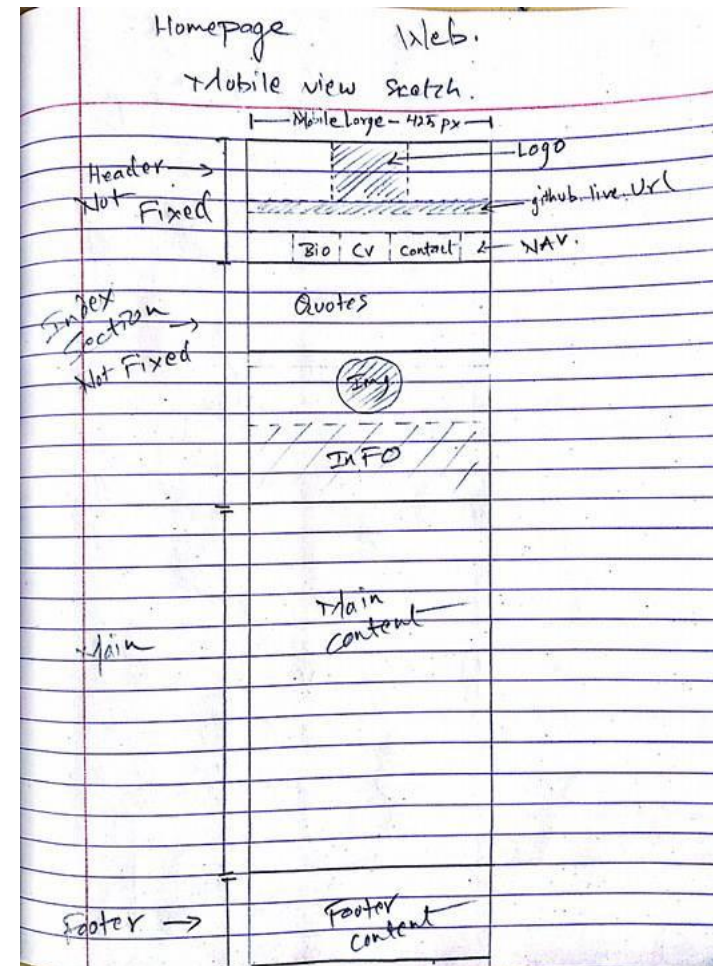 Homepage Web.
Mobile view Sketch.
Mobile Large - 425 px
Logo
Header
Not Fixed
github.live.Url
Bio CV Contact NAV.
Index
Section
Not Fixed
Quotes
Img
InFO
Main
content
Main
Footer
Footer
content